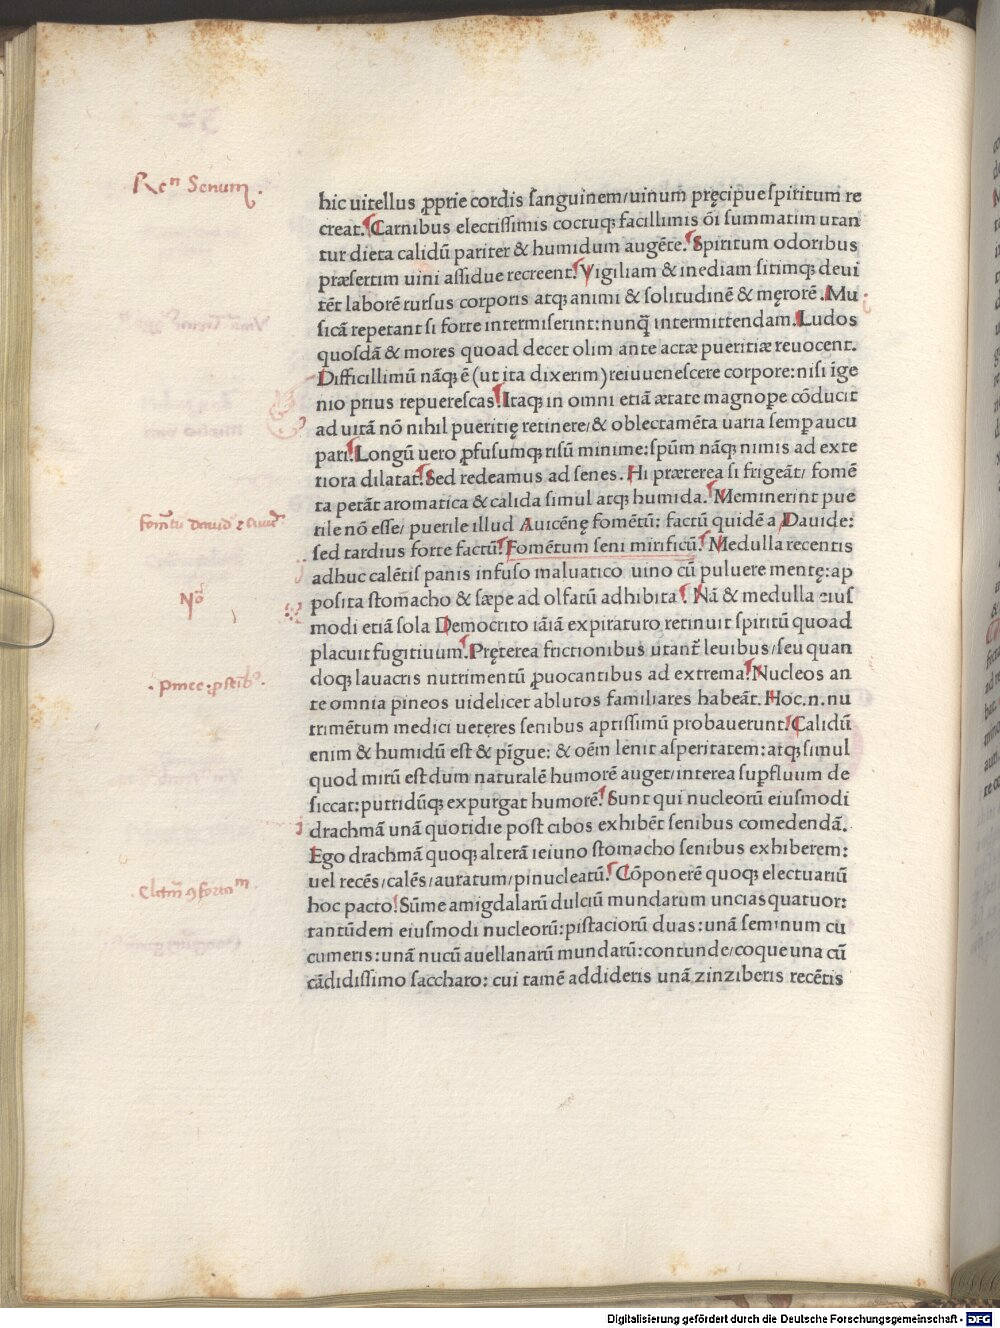 Re^n Senum.
hic uitellus ꝓprie cordis sanguinem/uinum pręcipue spiritum re
creat. Carnibus electissimis coctuqꝫ facillimis oĩ summatim utan
tur dieta calidũ pariter & humidum augẽte. Spiritum odoribus
præsertim uini assidue recreent. Vigiliam & inediam sitimqꝫ deui
tẽt laborẽ rursus corporis atqꝫ animi & solitudinẽ & męrorẽ. Mu
sicã repetant si forte intermiserint: nunq̃ intermittendam. Ludos
quosdã & mores quoad decet olim ante actæ pueritiæ reuocent.
Difficillimũ nãqꝫ ẽ (ut ita dixerim) reiuuenescere corpore: nisi ĩge
nio prius repuerescas. Itaqꝫ in omni etiã ætate magnope cõducit
ad uitã nõ nihil pueritię retinere/& oblectamẽta uaria semꝑ aucu
pari. Longũ uero ꝓfusumqꝫ risũ minime: spũm nãqꝫ nimis ad exte
riora dilatat. Sed redeamus ad senes. Hi præterea si frigeãt/ fomẽ
ta petãt aromatica & calida simul atqꝫ humida. Meminerint pue
rile nõ esse/ puerile illud Auicẽnę fomẽtũ: factũ quidẽ a Dauide:
sed tardius forte factũ. Fomẽtum seni mirificũ. Medulla recentis
adhuc calẽtis panis infuso maluatico uino cũ puluere mentę: ap
posita stomacho & sæpe ad olfatũ adhibita. Nã & medulla eius
modi etiã sola Democrito iãiã expiraturo retinuit spiritũ quoad
placuit fugitiuum. Pręterea frictionibus utant̃ leuibus/seu quan
doqꝫ lauacris nutrimentũ ꝓuocantibus ad extrema. Nucleos an
te omnia pineos uidelicet ablutos familiares habeãt. Hoc.n.nu
trimẽtum medici ueteres senibus aptissimũ probauerunt. Calidũ
enim & humidũ est & pĩgue: & oẽm lenit asperitatem: atqꝫ simul
quod mirũ est dum naturalẽ humorẽ auget/interea suꝑfluum de
siccat: putridũqꝫ expurgat humorẽ. Sunt qui nucleorũ eiusmodi
drachmã unã quotidie post cibos exhibẽt senibus comedendã.
Ego drachmã quoqꝫ alterã ieiuno stomacho senibus exhiberem:
uel recẽs/calẽs/auratum/pinucleatũ. Cõponerẽ quoqꝫ electuariũ
hoc pacto. Sũme amigdalarũ dulciũ mundarum uncias quatuor:
tantũdem eiusmodi nucleorũ: pistaciorũ duas: unã seminum cu
cumeris: unã nucũ auellanarũ mundatũ: contunde/coque una cũ
cãdidissimo saccharo: cui tamẽ addideris unã zinziberis recẽtis
Digitalisierung gefördert durch die Deutsche Forschungsgemeinschaft - DFG